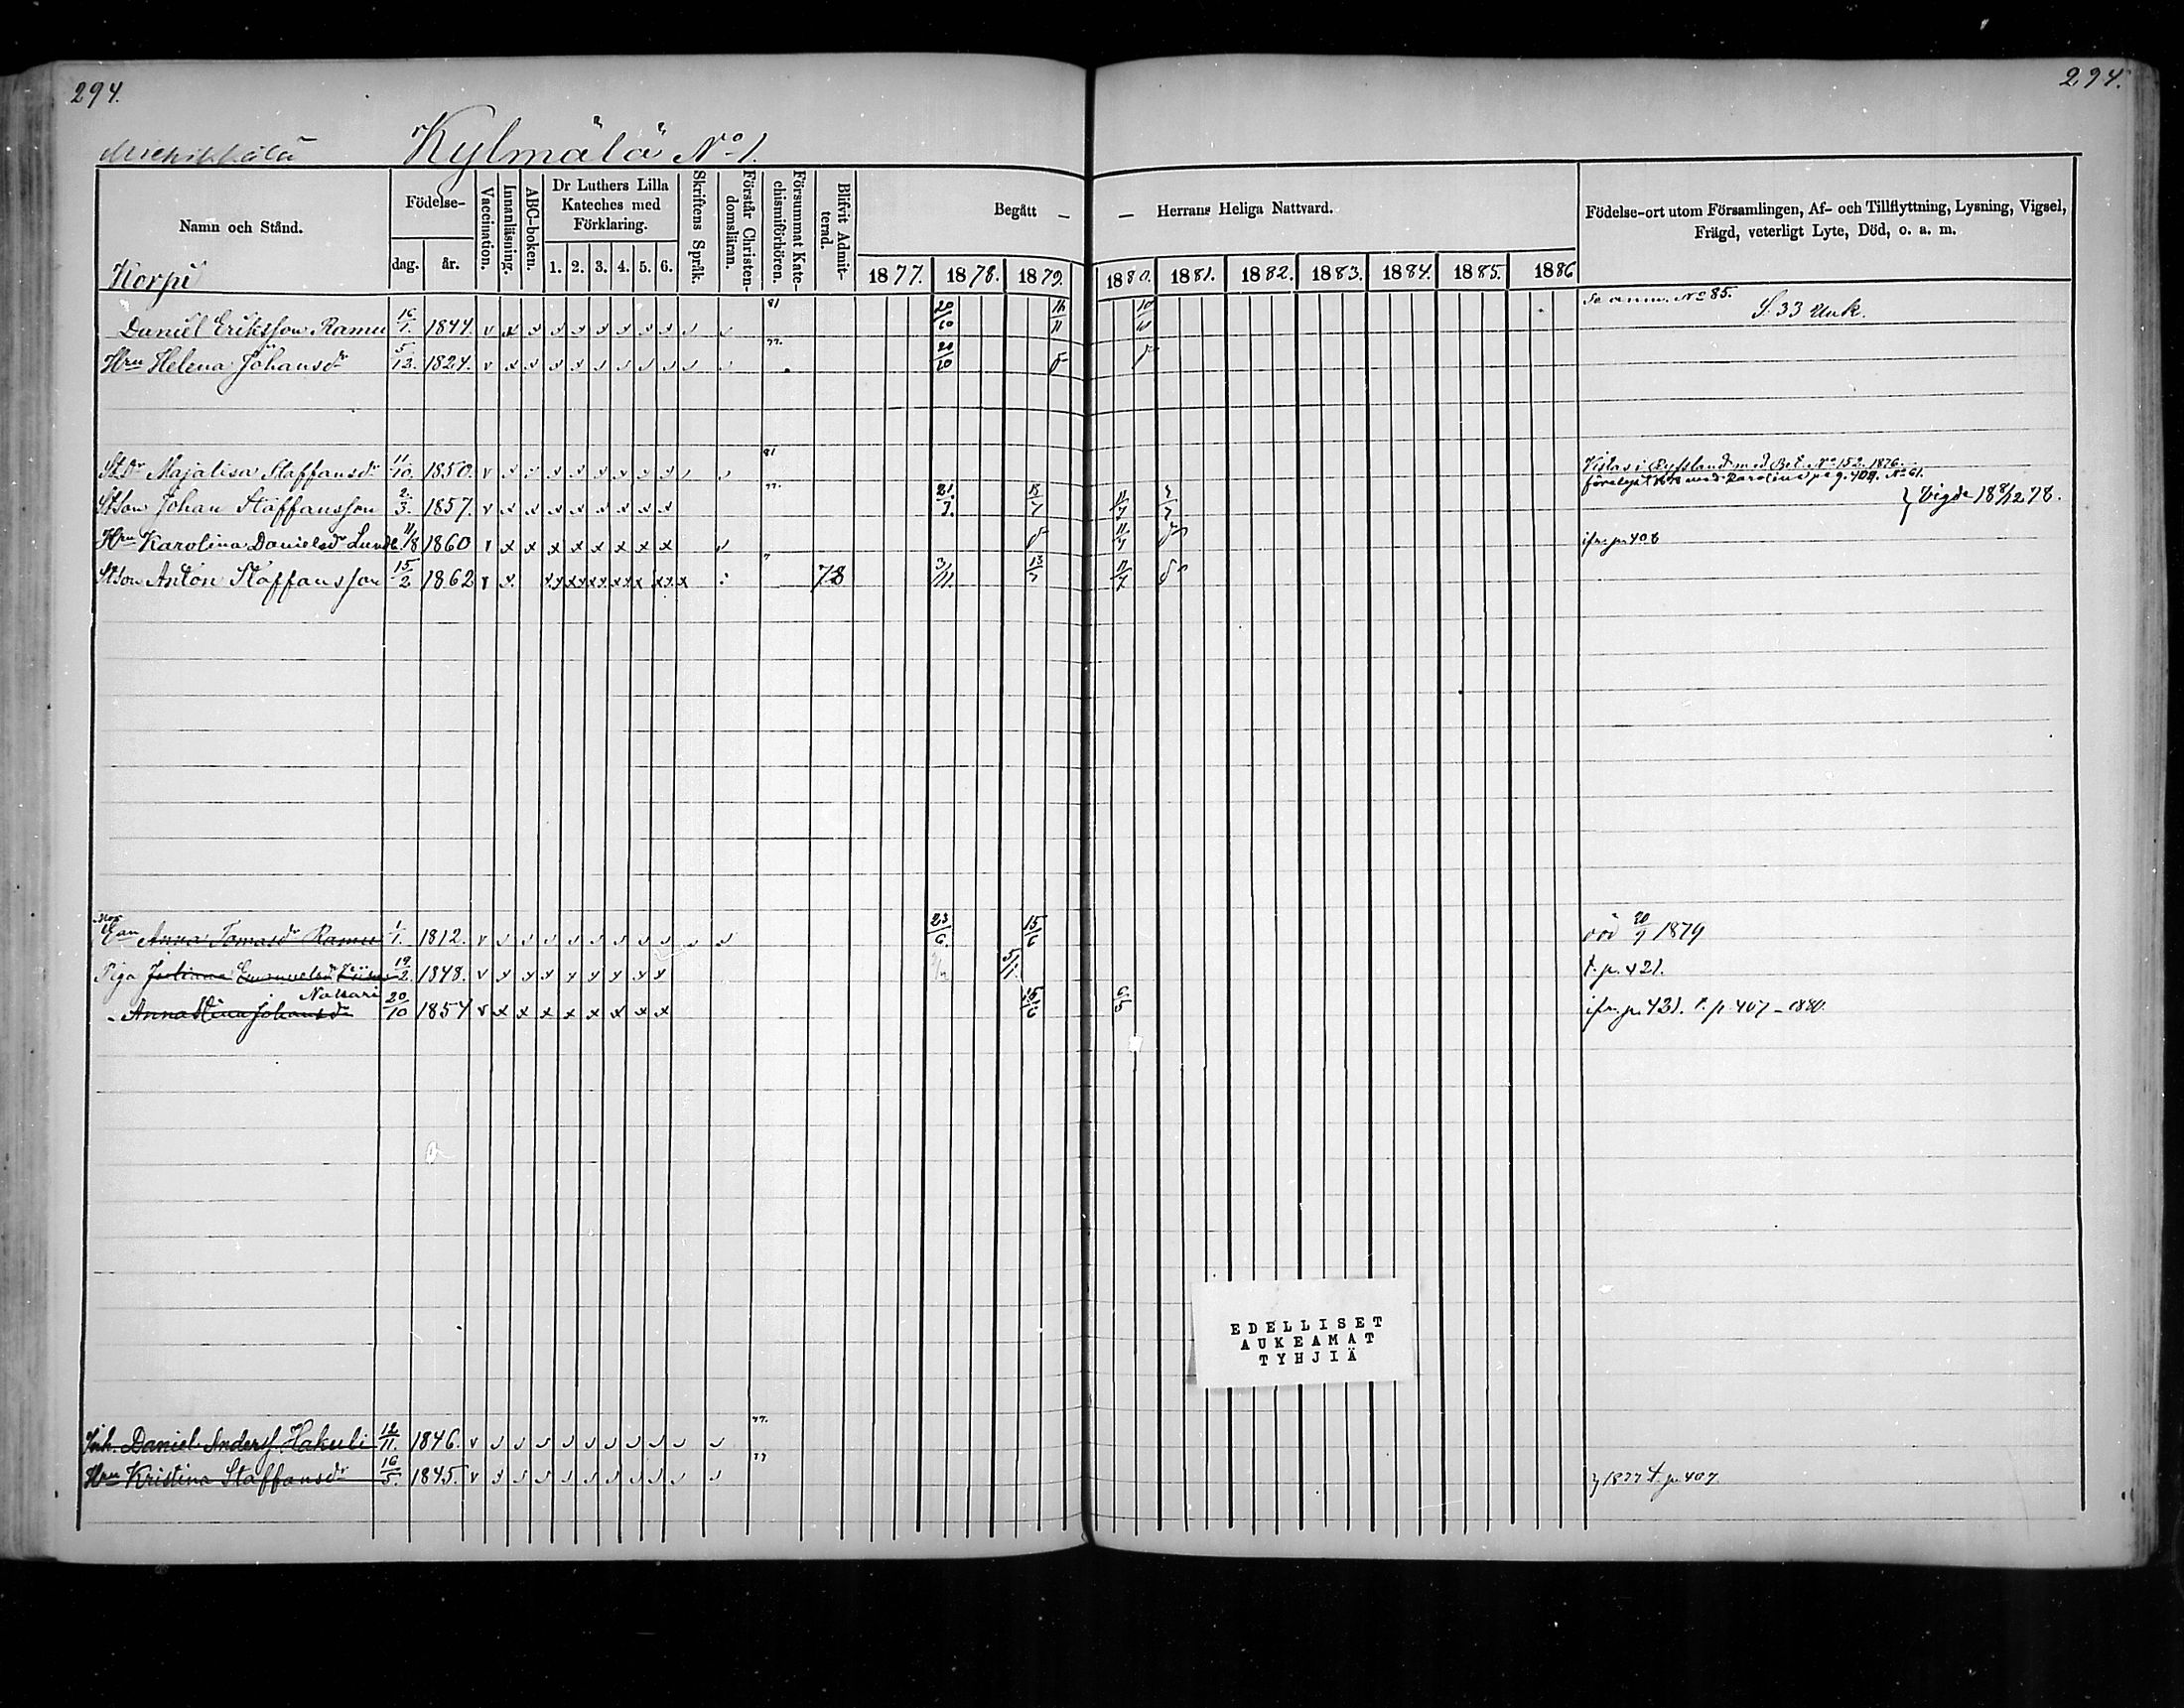 294.
294.
Michikkälä Kylmälä No 1.
Namn och Stånd.
Födelse-
dag.
år.
Vaccination.
Innanläsning.
ABC-boken.
Dr Luthers Lilla
Kateches med
Förklaring.
1. 2. 3. 4. 5. 6.
Skriftens Språk.
Förstår Christen-
domsläran.
Försummat Kate-
chismiförhören.
Blifvit Admit-
terad.
Begått — — Herrans Heliga Nattvard.
1877. 1878. 1879. 1880. 1881. 1882. 1883. 1884. 1885. 1886
Födelse-ort utom Församlingen, Af- och Tillflyttning, Lysning, Vigsel,
Frägd, veterligt Lyte, Död, o. a. m.
Korpi
Daniel Eriksson Ramu 16/1. 1844. v x x x x x x x x 81 20/10 16/11 10/10 Se anm. No 85. S. 33 Unk.
Hru Helena Johansdr 5/13. 1824. v 77. 20/10
StDr Majalisa Staffansdr 11/10. 1850. v 81 Vistas i Ryssland med Bet. No 152. 1876.
StSon Johan Staffansson 2/3. 1857. v 77. 21/7. 13/7 11/7 7/7 No 61. } Vigde 18 8/12 78.
Hru Karolina Danielsdr Lund 11/8 1860 v x x x x x x x x 11/7 ifr. p. 408
StSon Anton Staffansson 15/2 1862 v x. 78 3/11. 13/7 11/7
Mor
Ean Anna Tomasdr Ramu 1/1. 1812. v 23/6. 15/6 död 20/7 1879
Piga Juliana Emanuelsdr 19/2 1848. v x x x x x x x x 5/1. t. p. 421.
Nakari
- Anna Stina Johansdr 20/10 1857 v x x x x x x x x 15/6 6/5 ifr. p. 421. t. p. 407 - 1880.
EDELLISET
AUKEAMAT
TYHJIÄ
Inh. Daniel Anderss. Hakuli 12/11. 1846. v 77.
Hru Kristina Staffansdr 16/5. 1845. v 77 } 1877 t. p. 407.